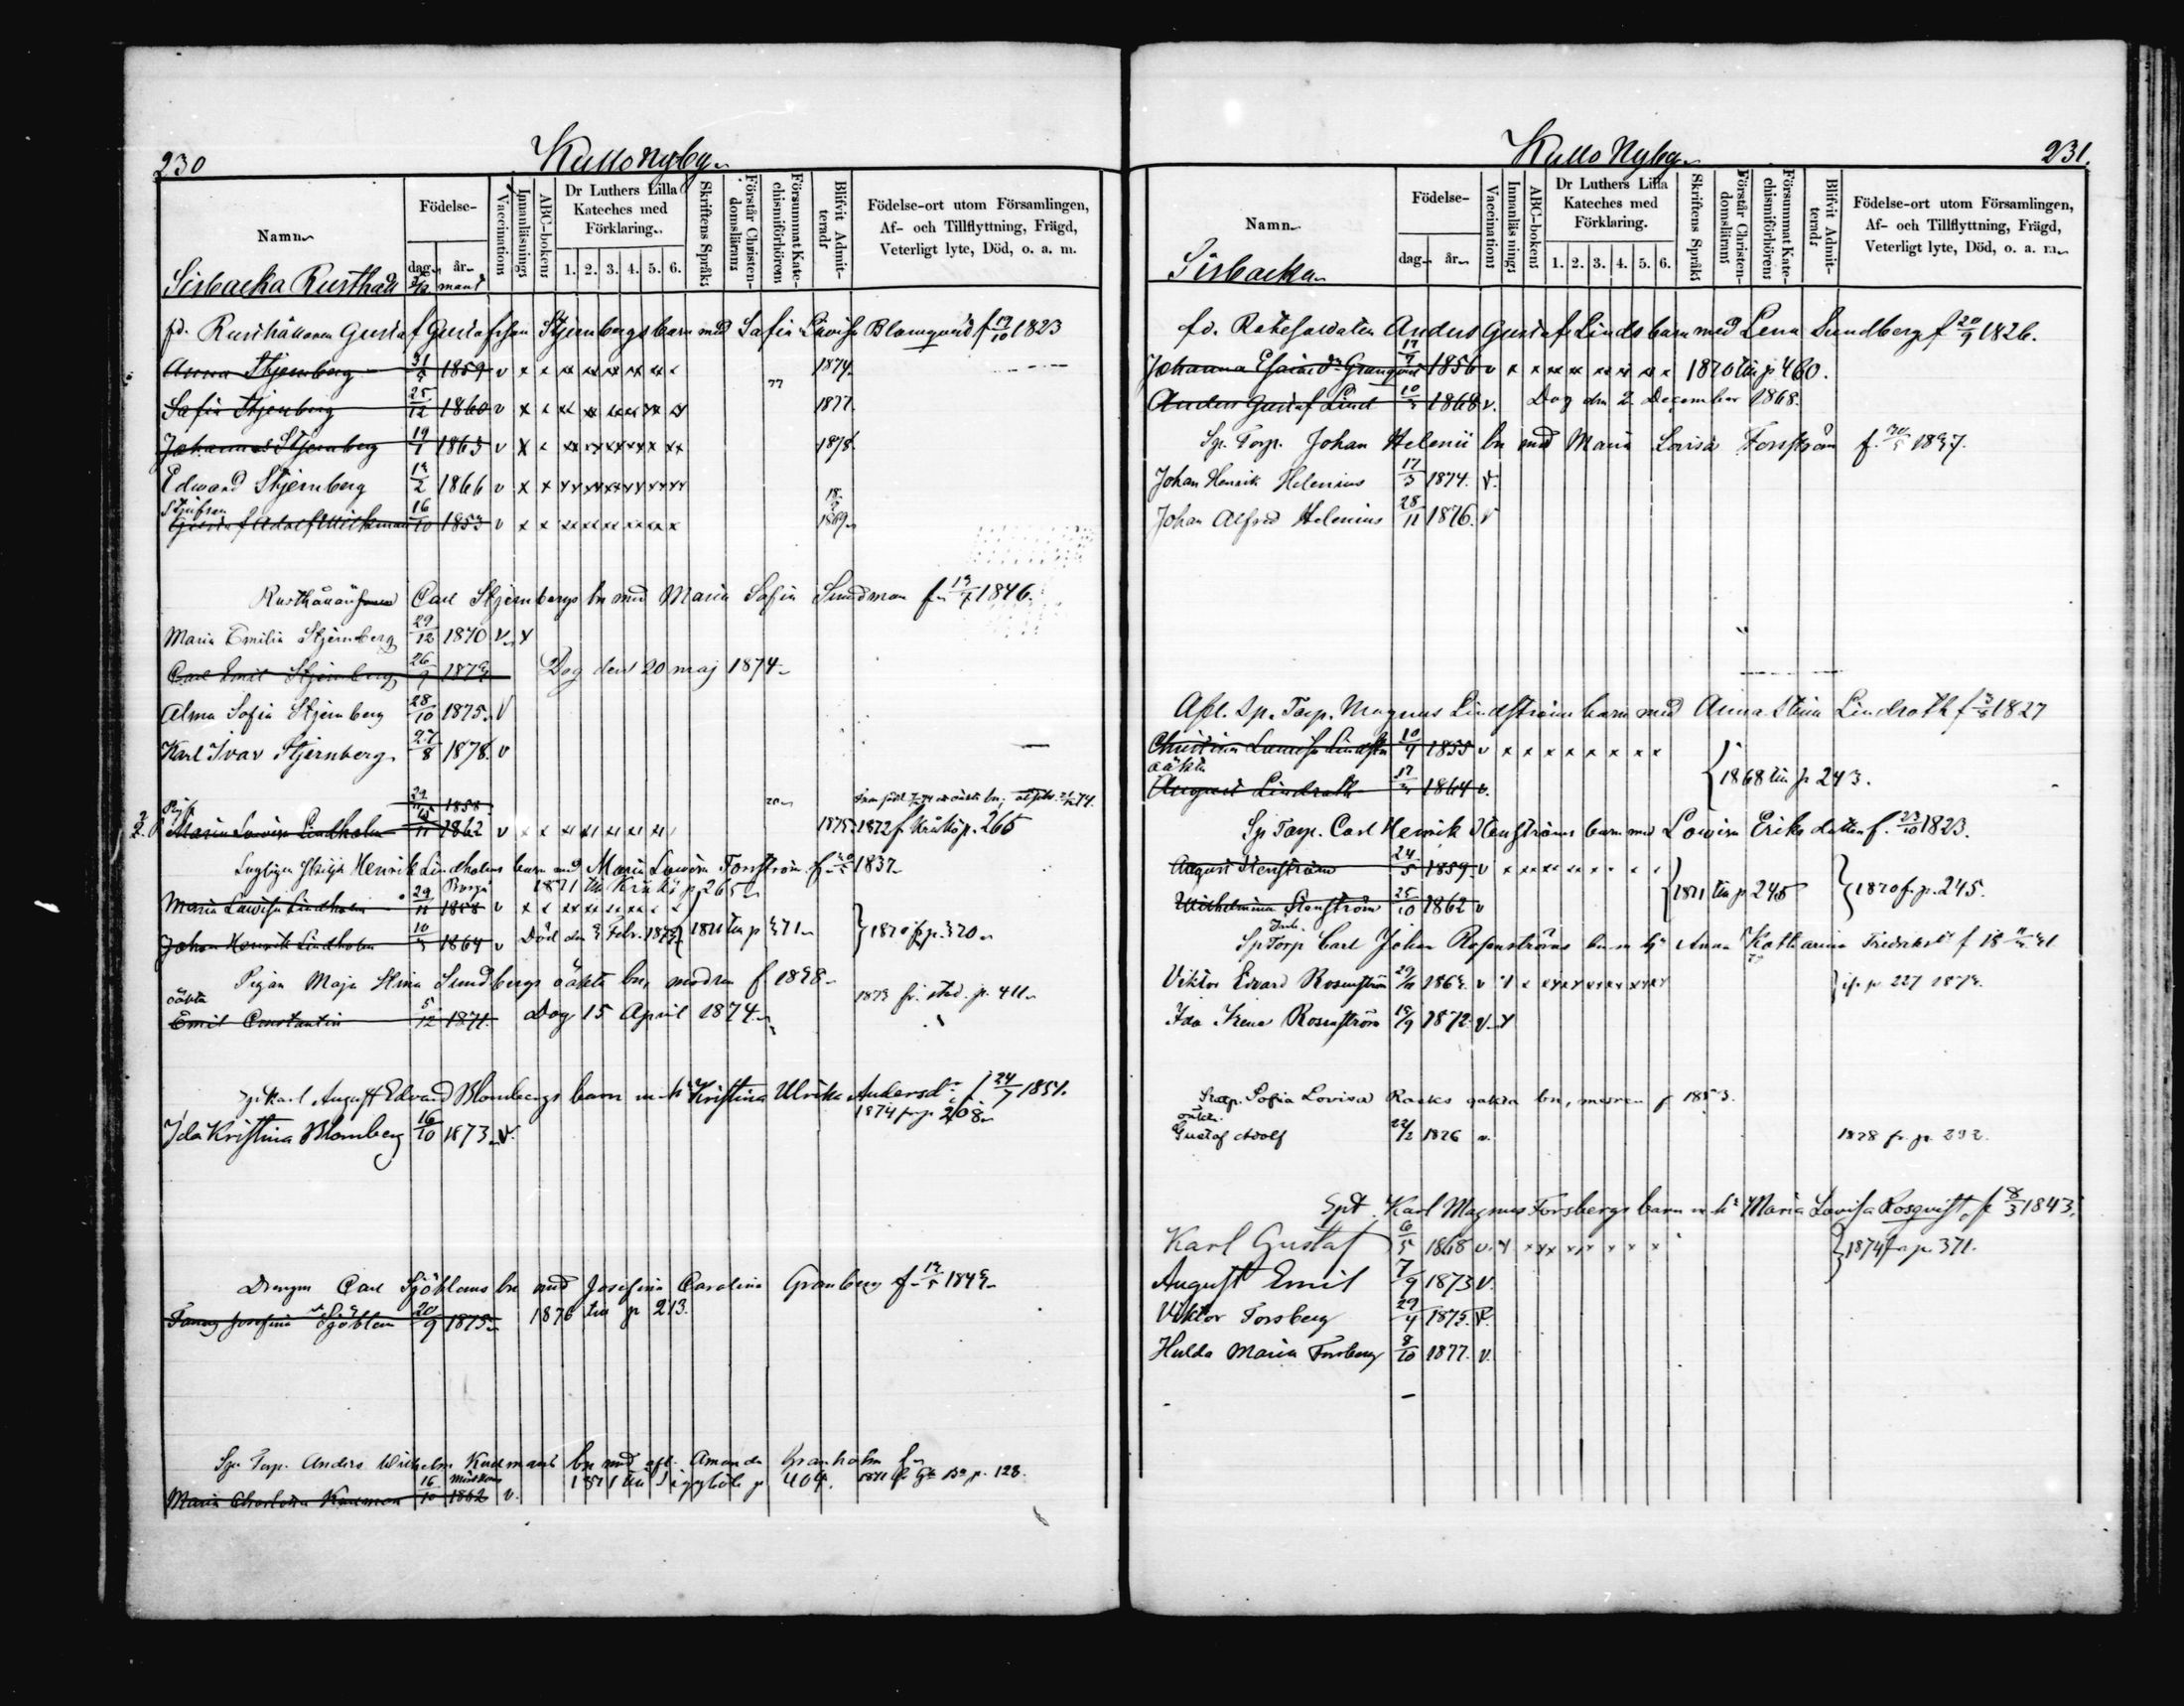 230
Kullo Nyby
Namn
Födelse-
dag
år
Vaccinations
Innanläsnings
ABC-bokens
Dr Luthers Lilla Kateches med Förklaring.
1. 2. 3. 4. 5. 6.
Skriftens Språks
Förstår Christen-domslärans
Försummat Kate-chismiförhören
Blifvit Admit-terads
Födelse-ort utom Församlingen, Af- och Tillflyttning, Frägd, Veterligt lyte, Död, o. a. m.
Sisbacka Rusthåll
fd. Rusthållaren Gustaf Gustafsson Stjernbergs barn med Sofia Lovisa Blomqvist f 12/10 1823
Anna Stjernberg 1859 v 1874
Sofia Stjernberg 25/12 1860 v 1877
Johannes Stjernberg 19/1 1863 v 1878
Edward Stjernberg 12/2 1866 v
Styfson
Gustaf Adolf 16/10 1853 v 1869
Carl Stjernbergs bn med Maria Sofia Sundman 1846
Maria Emilia Stjernberg 29/12 1870 v
Carl Emil Stjernberg 26/9 1873 Dog den 20 maj 1874
Alma Sofia Stjernberg 28/10 1875 v
Karl Ivar Stjernberg 27/8 1878 v
Maria Lovisa Lindholm 1862 v 1872 f. Kråkö p. 265
Henrik Lindholms barn med Maria Lovisa Forsström 1837
Borgå 1871 till Kråkö p. 265
Maria Lovisa Lindholm 29/11 1858 v
Johan Henrik Lindholm 10/3 1864 v Död den 3 Febr. 1873 1871 till p 371 1870 f. p. 370
Pigan Maja Stina Sundbergs oäkta bn, modren f 1838
oäkta
Emil Constantin 5/12 1871 Dog 15 April 1874 1873 fr. stad. p. 411
Karl August Edvard Blombergs barn m. h. Kristina Ulrika Andersdr f 24/7 1851
1874 fr p. 208
Ida Kristina Blomberg 16/10 1873 v
Drengen Carl Sjöbloms bn med Josefina Carolina Granberg
Fanny Josefina Sjöblom 20/9 1875 1876 till p 213
Sp. Torp. Anders Wilhelm bn med afl. Amanda Granholm
1871 till Siggböle p 404. p. 128
Maria Charlotta 16/10 1862 v
Kullo Nyby
231.
Namn
Födelse-
dag
år
Vaccinations
Innanläsnings
ABC-bokens
Dr Luthers Lilla Kateches med Förklaring.
1. 2. 3. 4. 5. 6.
Skriftens Språks
Förstår Christen-domslärans
Försummat Kate-chismiförhörens
Blifvit Admit-terads
Födelse-ort utom Församlingen, Af- och Tillflyttning, Frägd, Veterligt lyte, Död, o. a. m.
Sisbacka
fd. Rotesoldaten Anders Gustaf Linds barn med Lena Sundberg f 20/9 1826.
Johanna Granqvist 1856 v 1870 till p 460.
Anders Gustaf Lind 1868 v. Dog den 2 December 1868.
Sp. Torp. Johan Helenii bn med Maria Lovisa Forsström 1837.
Johan Henrik Helenius 17/3 1874. v.
Johan Alfred Helenius 28/11 1876. v
Afl. Sp. Torp. Magnus Lindströms barn med Anna Stina Lindroth 1827
Christina Lovisa 10/4 1855 v
oäkta
August Lindroth 1864 v.
1868 till p 243.
Sp Torp. Carl Henrik Stenströms barn med Lovisa Eriksdotter f. 23/10 1823.
August Stenström 24/5 1859 v
Wilhelmina Stenström 25/10 1862 v
1871 till p 245 1870 f. p. 245.
Sp Torp Carl Johan Rosenströms bn m h. Anna Katharina Fredriksdr
Viktor Edvard Rosenström v p 227
Ida Irena Rosenström 1872 v
Sofia Lovisa oäkta bn, modren f 1853.
oäkta
Gustaf Adolf 22/2 1876 v. 1878 fr. p. 292.
Karl Magnus Forsbergs barn m h. Maria Lovisa Rosqvist, f 8/3 1843.
Karl Gustaf 6/5 1868 v. 1874 fr p. 371.
August Emil 7/9 1873 v.
Viktor Forsberg 29/4 1875. v.
Hulda Maria Forsberg 8/10 1877. v.